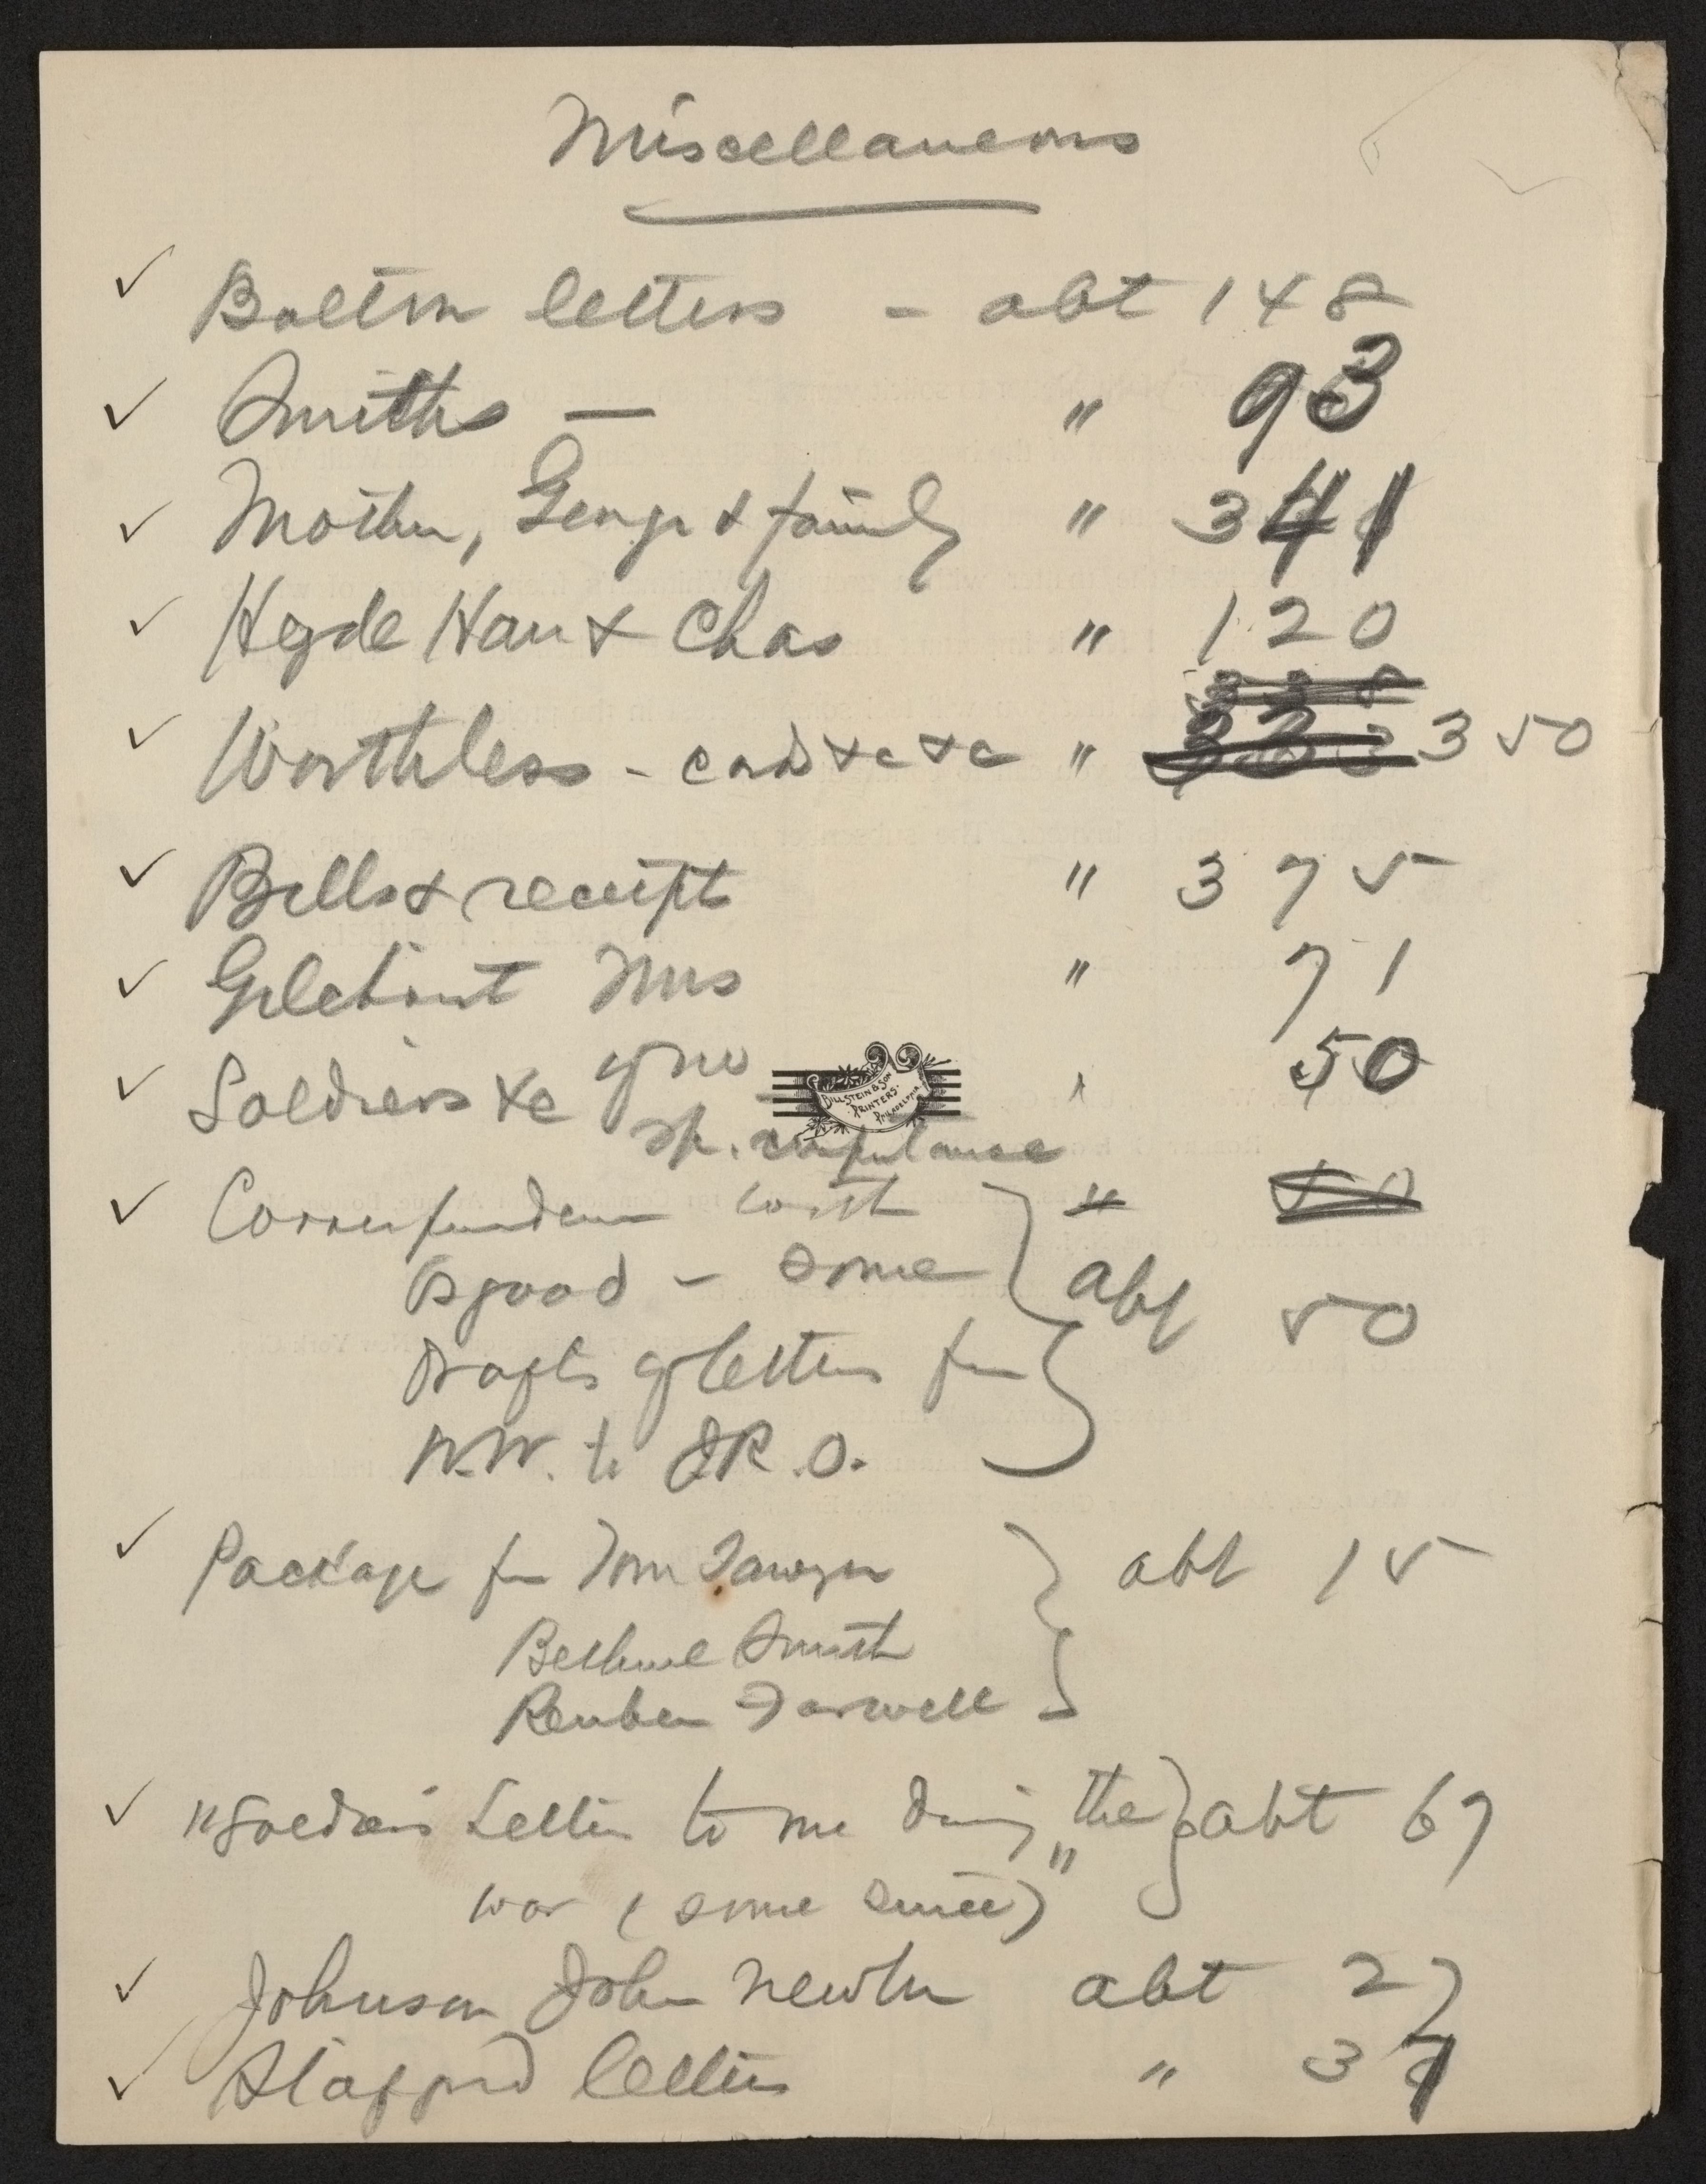 Miscellaneous
✓ Bolton letters - abt 148
✓ Smiths — " 93
✓ Mother, George & family " 341
✓ Heyde Han & Chas " 120
338
✓ Worthless - cards &c &c " 333 350
✓ Bills & receipts " 375
✓ Gilchrist Mrs " 71
✓ Soldiers &c of no " 50
BILLSTEIN & SON
PRINTERS.
PHILADELPHIA
sp. importance
✓ Correspondence with " 50
Osgood - some } abt 50
Drafts of letters fm
W.W. to J.R.O.
✓ Package fm Tom Sawyer } abt 15
Bethuel Smith
Reuben Farwell
✓ "Soldiers Letters to me during the } abt 67
war (some since)"
✓ Johnson John Newton abt 27
✓ Stafford letters " 37